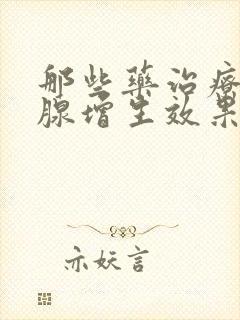 那些藥治療
腺增生效果
亦妖言